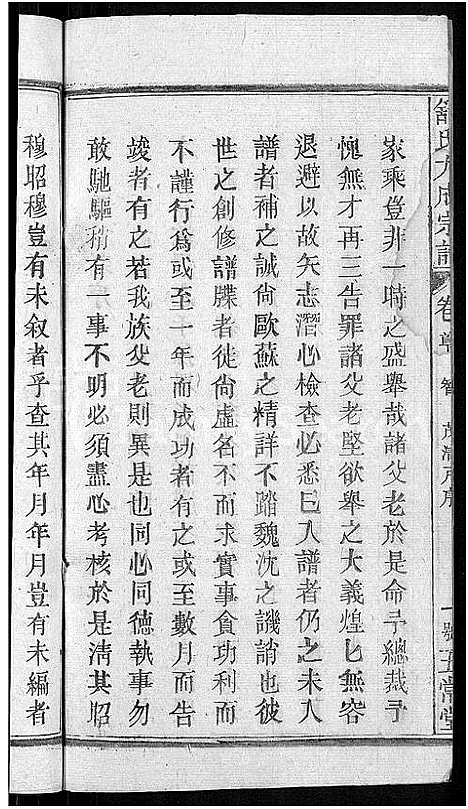 舒氏大成宗譜
卷首
智
一號五常堂
家乘豈非一時之盛舉哉諸父老於是命予總裁予
愧無才再三告罪諸父老堅欲舉之大義煌匕無容
退避以故矢志潛心檢查必悉已入譜者仍之未入
譜者補之誠尙歐蘇之精詳不踏魏沈之譏誚也兹
世之創修譜牒者徒尙虛名不而求實事貪功利而
不謹行爲或至一年而成功者有之或至數月而告
竣者有之若我族父老則異是也同心同德執事勿
敢馳驅稍有一事不明必須盡心考核於是淸其昭
穆昭穆豈有未叙者乎查其年月年月豈有未編者